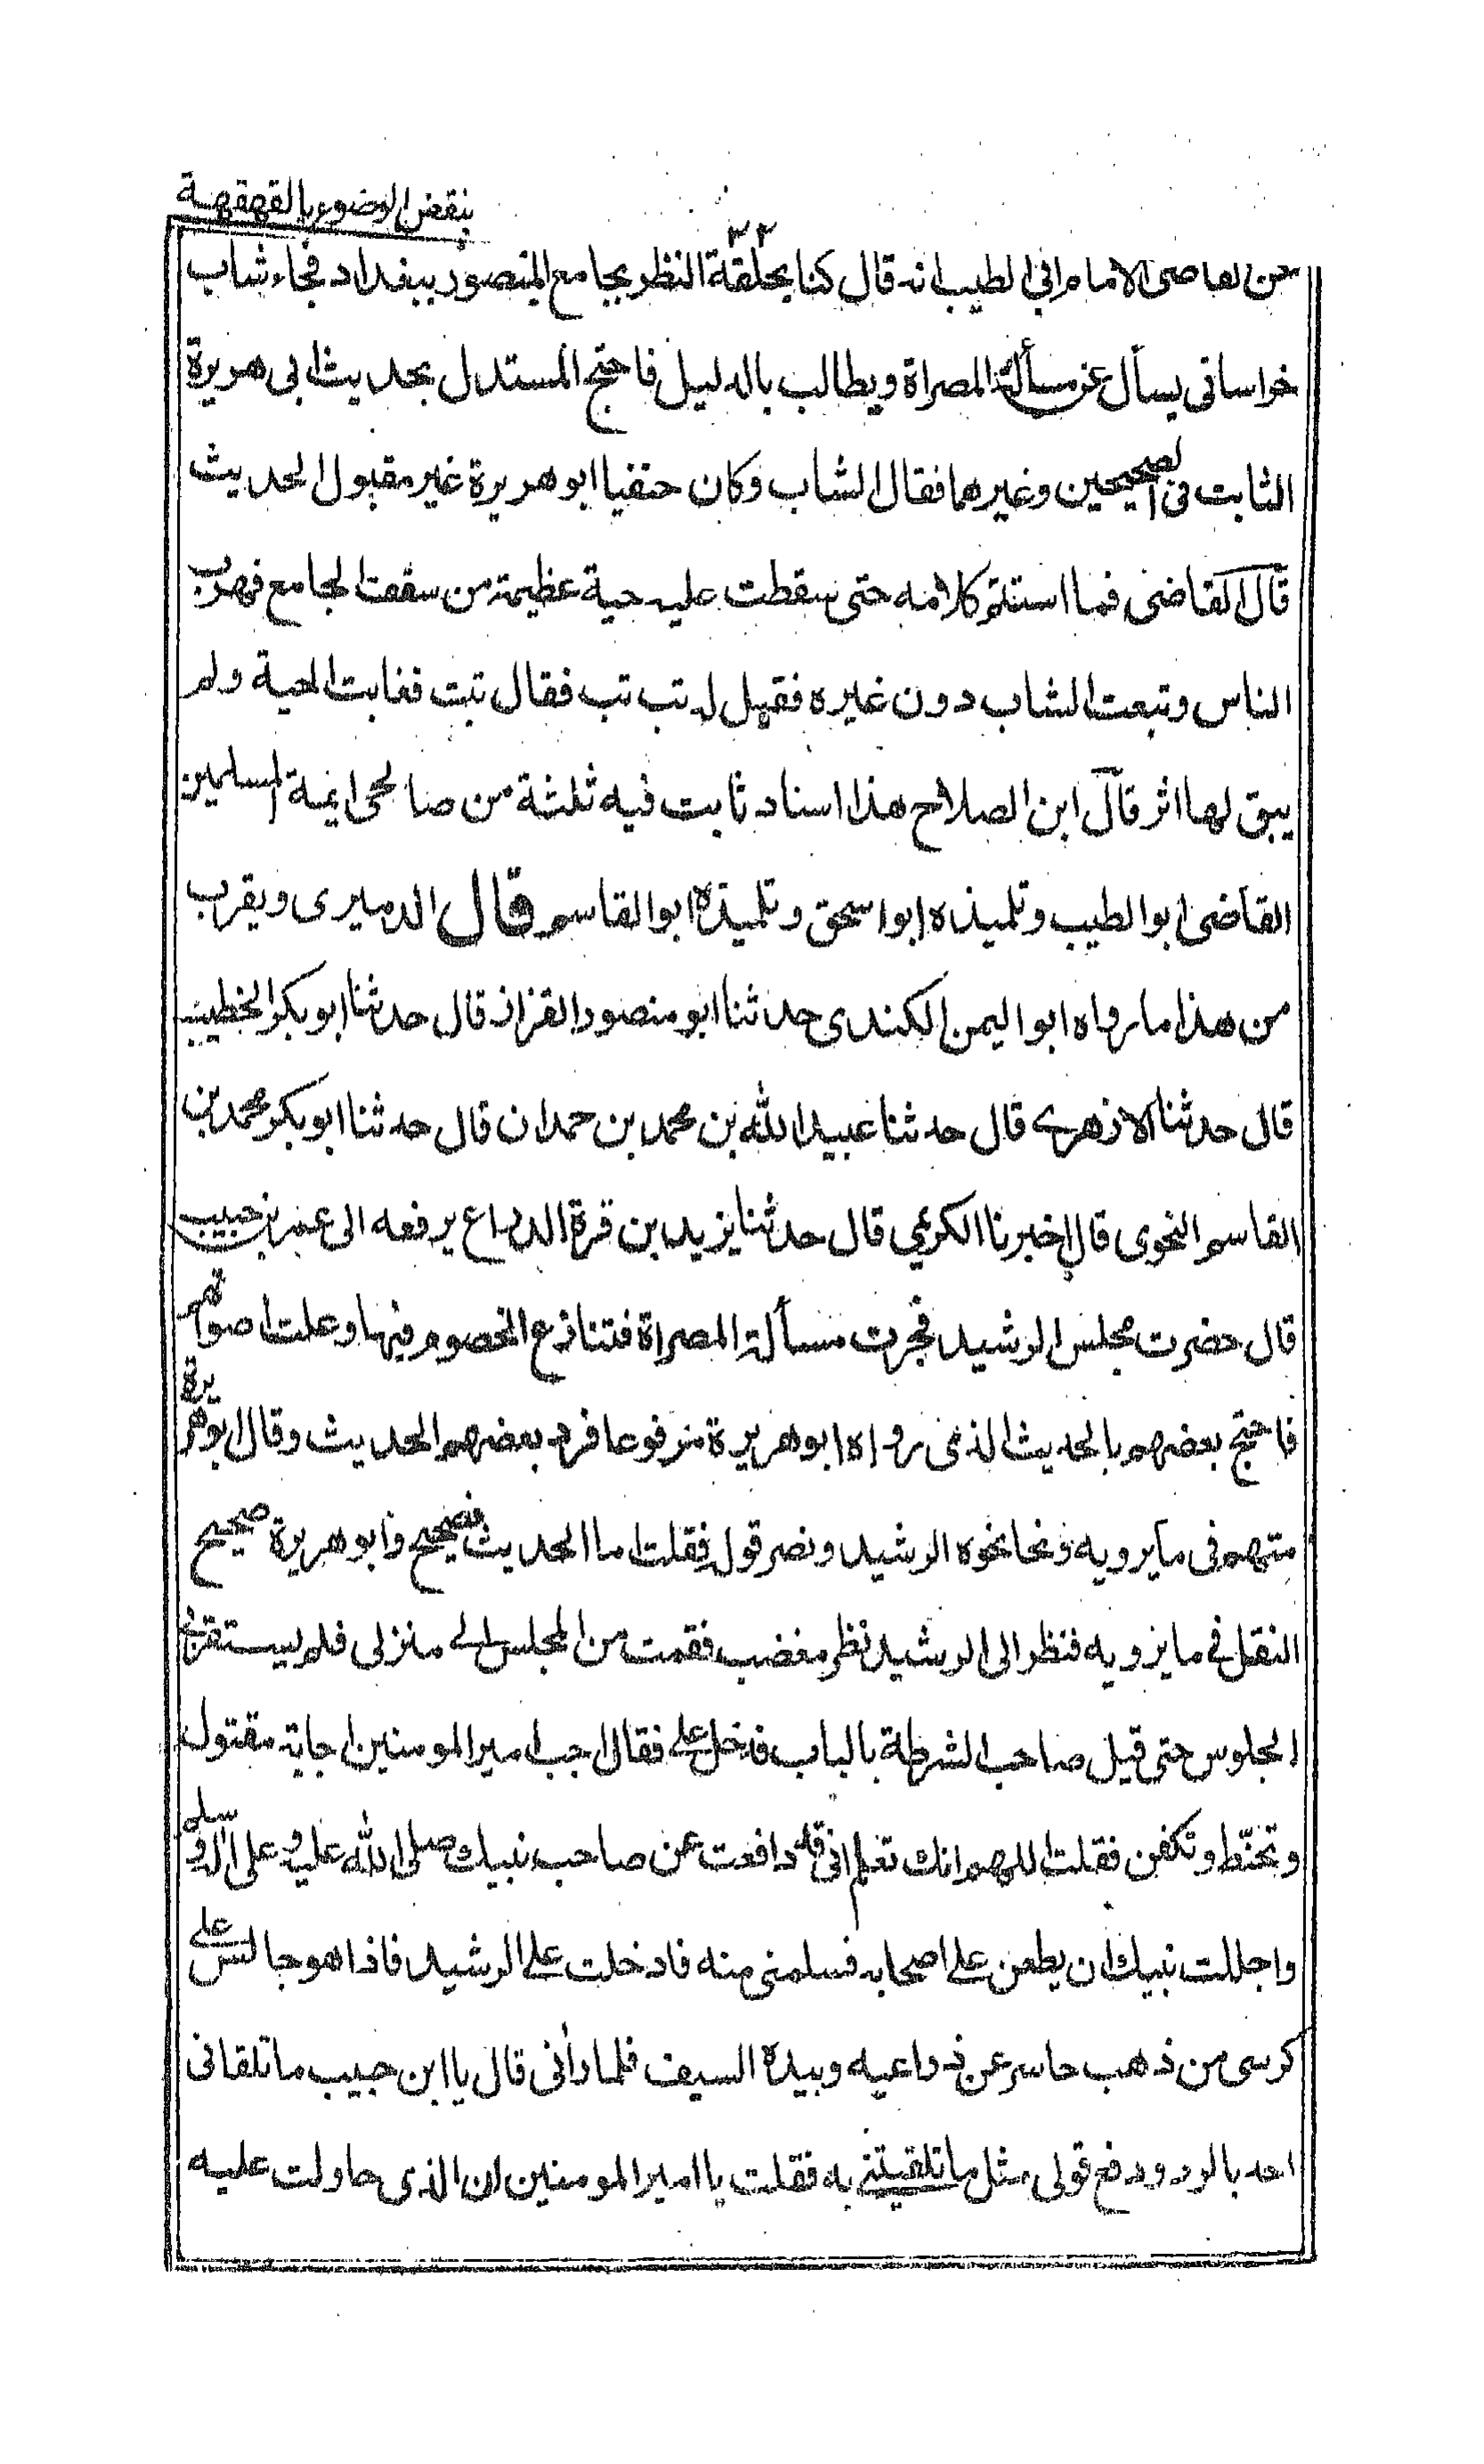 بنقض الوضوء بالقهقهة
٣٢
عن القاضى الامام ابى الطيب انه قال كنا بحلقة النظر بجامع المنصور ببغداد فجاء شاب
خراسانى يسأل عن مسألة المصراة ويطالب بالدليل فاحتج المستدل بحديث ابى هريرة
الثابت فى الصحيحين وغيرهما فقال الشاب وكان حنفيا ابو هريرة غير مقبول الحديث
قال القاضى فما استتم كلامه حتى سقطت عليه حية عظيمة من سقف الجامع فهرب
الناس وتبعت الشاب دون غيره فقيل له تب تب فقال تبت فغابت الحية ولم
يبق لها اثر قال ابن الصلاح هذا اسناد ثابت فيه ثلثة من صالحى ايمة المسلمين
القاضى ابو الطيب وتلميذه ابو اسحق وتلميذه ابو القاسم قال الدميرى ويقرب
من هذا ما رواه ابو اليمن الكندى حدثنا ابو منصور القزاز قال حدثنا ابو بكر الخطيب
قال حدثنا الازهرے قال حدثنا عبيد الله بن محمد بن حمدان قال حدثنا ابو بكر محمد بن
القاسم النحوى قال اخبرنا الكريمي قال حدثنا يزيد بن قرة الدراع يرفعه الى عمر بن حبيب
قال حضرت مجلس الرشيد فجرت مسألة المصراة فتنازع الخصوم فيها وعلت اصواتهم
فاحتج بعضهم بالحديث الذى رواه ابو هريرة مرفوعا فرد بعضهم الحديث وقال ابو هريرة
متهم فى ما يرويه ونحا نحوه الرشيد ونصر قوله فقلت اما الحديث فصحيح وابو هريرة صحيح
النقل فے ما يرويه فنظر الى الرشيد نظر مغضب فقمت من المجلس الے منزلى فلم يستقر بى
الجلوس حتى قيل صاحب الشرطة بالباب فدخل علے فقال اجب امير المومنين اجابة مقتول
وتحنّط وتكفن فقلت اللهم انك تعلم انى قد دافعت عن صاحب نبيك صلى الله عليه وعلى اله وسلم
واجللت نبيك ان يطعن علے اصحابه فسلمنى منه فادخلت علے الرشيد فاذا هو جالس علے
كرسى من ذهب حاسر عن ذراعيه وبيده السيف فلما رأنى قال يا ابن حبيب ما تلقانى
احد بالرد ودفع قولى مثل ما تلقيتنے به فقلت يا امير المومنين ان الذى حاولت عليه